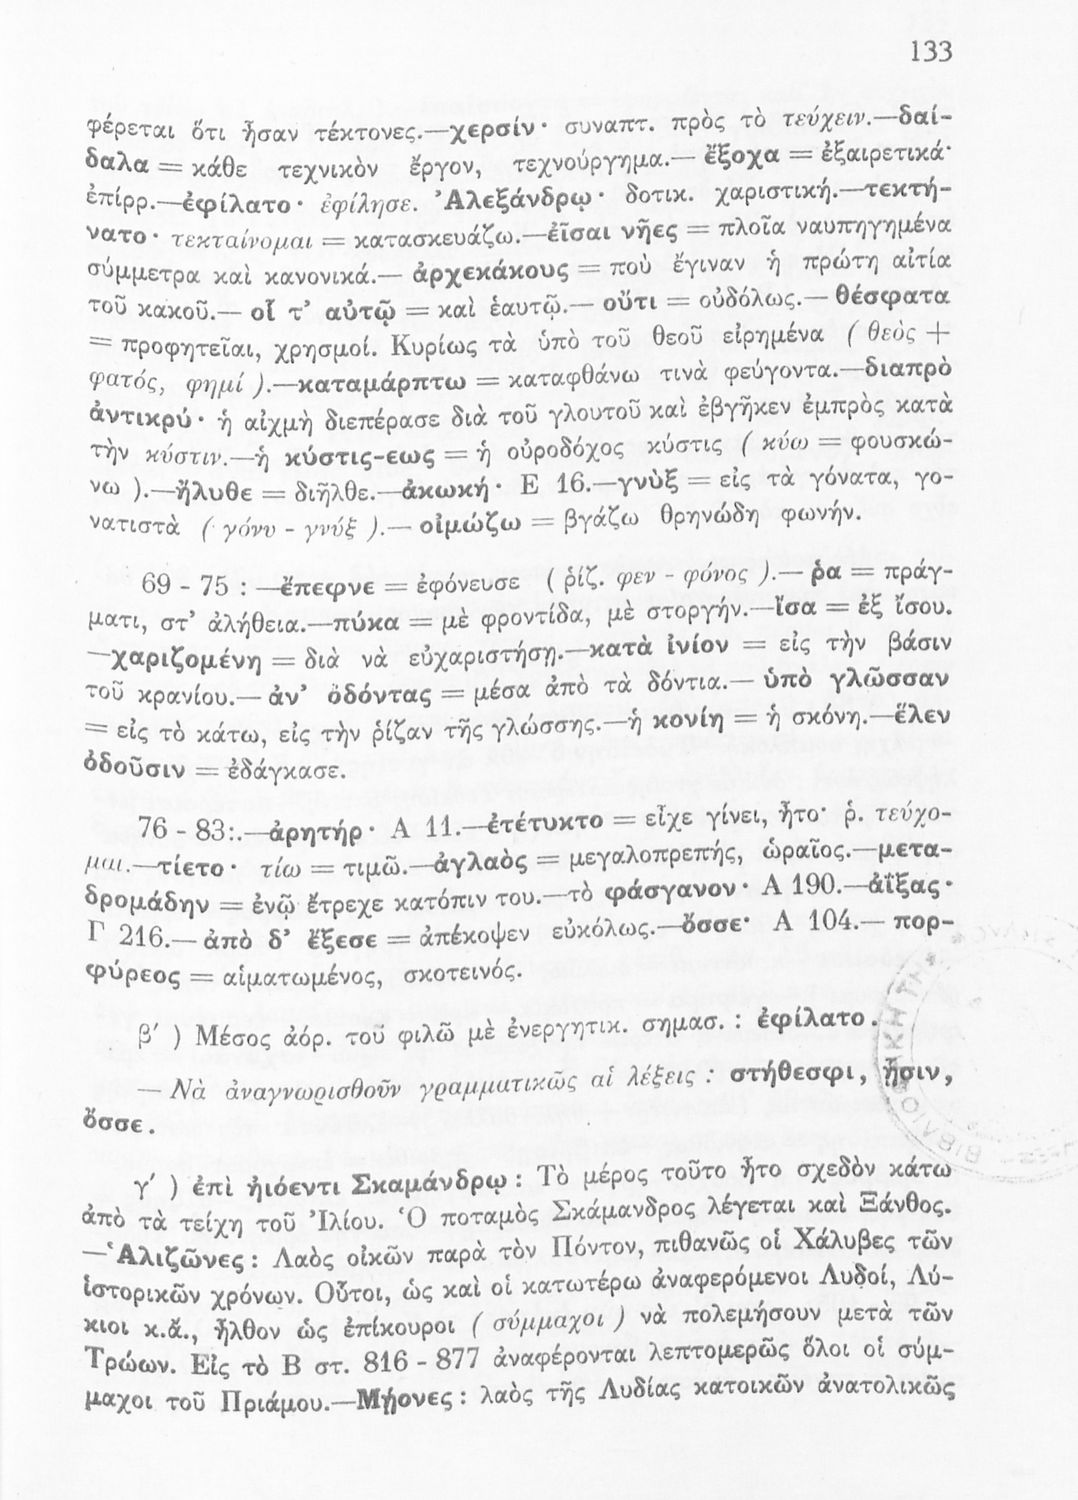 133
φέρεται ὅτι ἦσαν τέκτονες.—χερσίν· συναπτ. πρὸς τὸ τεύχειν.—δαί-
δαλα = κάθε τεχνικὸν ἔργον, τεχνούργημα.— ἔξοχα = ἐξαιρετικά·
ἐπίρρ.—ἐφίλατο· ἐφίλησε. Ἀλεξάνδρῳ· δοτικ. χαριστική.—τεκτή-
νατο· τεκταίνομαι = κατασκευάζω.—ἐῖσαι νῆες = πλοῖα ναυπηγημένα
σύμμετρα καὶ κανονικά.— ἀρχεκάκους = ποὺ ἔγιναν ἡ πρώτη αἰτία
τοῦ κακοῦ.— οἷ τ’ αὐτῷ = καὶ ἑαυτῷ.— οὔτι = οὐδόλως.— θέσφατα
= προφητεῖαι, χρησμοί. Κυρίως τὰ ὑπὸ τοῦ θεοῦ εἰρημένα ( θεὸς +
φατός, φημί ).—καταμάρπτω = καταφθάνω τινὰ φεύγοντα.—διαπρὸ
ἀντικρύ· ἡ αἰχμὴ διεπέρασε διὰ τοῦ γλουτοῦ καὶ ἐβγῆκεν ἐμπρὸς κατὰ
τὴν κύστιν.—ἡ κύστις-εως = ἡ οὐροδόχος κύστις ( κύω = φουσκώ-
νω ).—ἤλυθε = διῆλθε.—ἀκωκή· Ε 16.—γνὺξ = εἰς τὰ γόνατα, γο-
νατιστὰ ( γόνυ - γνύξ ).— οἰμώζω = βγάζω θρηνώδη φωνήν.
69 - 75 : —ἔπεφνε = ἐφόνευσε ( ῥίζ. φεν - φόνος ).— ῥα = πράγ-
ματι, στ’ ἀλήθεια.—πύκα = μὲ φροντίδα, μὲ στοργήν.—ἶσα = ἐξ ἴσου.
—χαριζομένη = διὰ νὰ εὐχαριστήσῃ.—κατὰ ἰνίον = εἰς τὴν βάσιν
τοῦ κρανίου.— ἀν’ ὀδόντας = μέσα ἀπὸ τὰ δόντια.— ὑπὸ γλῶσσαν
= εἰς τὸ κάτω, εἰς τὴν ῥίζαν τῆς γλώσσης.—ἡ κονίη = ἡ σκόνη.—ἕλεν
ὀδοῦσιν = ἐδάγκασε.
76 - 83:.—ἀρητήρ· Α 11.—ἐτέτυκτο = εἶχε γίνει, ἦτο· ῥ. τεύχο-
μαι.—τίετο· τίω = τιμῶ.—ἀγλαὸς = μεγαλοπρεπής, ὡραῖος.—μετα-
δρομάδην = ἐνῷ ἔτρεχε κατόπιν του.—τὸ φάσγανον· Α 190.—ἀΐξας·
Γ 216.— ἀπὸ δ’ ἔξεσε = ἀπέκοψεν εὐκόλως.—ὄσσε· Α 104.— πορ-
φύρεος = αἱματωμένος, σκοτεινός.
β′ ) Μέσος ἀόρ. τοῦ φιλῶ μὲ ἐνεργητικ. σημασ. : ἐφίλατο.
— Νὰ ἀναγνωρισθοῦν γραμματικῶς αἱ λέξεις : στήθεσφι, ᾗσιν,
ὄσσε.
γ′ ) ἐπὶ ἠιόεντι Σκαμάνδρῳ : Τὸ μέρος τοῦτο ἦτο σχεδὸν κάτω
ἀπὸ τὰ τείχη τοῦ Ἰλίου. Ὁ ποταμὸς Σκάμανδρος λέγεται καὶ Ξάνθος.
—Ἁλιζῶνες : Λαὸς οἰκῶν παρὰ τὸν Πόντον, πιθανῶς οἱ Χάλυβες τῶν
ἱστορικῶν χρόνων. Οὗτοι, ὡς καὶ οἱ κατωτέρω ἀναφερόμενοι Λυδοί, Λύ-
κιοι κ.ἄ., ἦλθον ὡς ἐπίκουροι ( σύμμαχοι ) νὰ πολεμήσουν μετὰ τῶν
Τρώων. Εἰς τὸ Β στ. 816 - 877 ἀναφέρονται λεπτομερῶς ὅλοι οἱ σύμ-
μαχοι τοῦ Πριάμου.—Μῄονες : λαὸς τῆς Λυδίας κατοικῶν ἀνατολικῶς